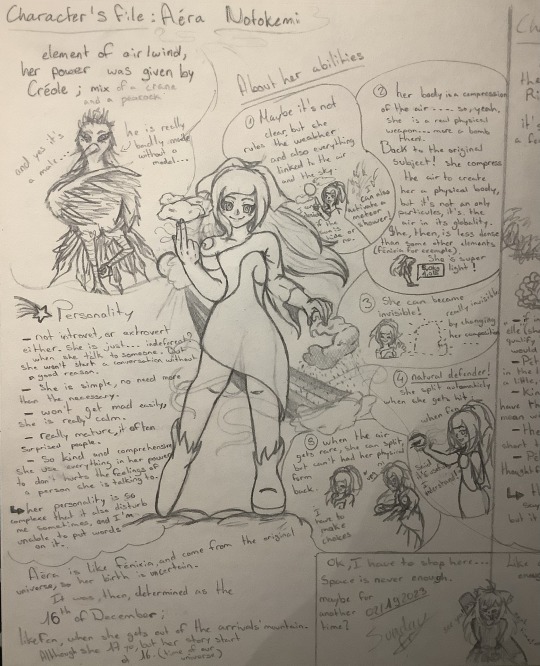 Character's File : Aéra Notokemi
element of air/wind,
her power was given by
Créole ; mix of a crane
and a peacock
and yes it's
a male...
he is really
badly made
without a
model...
About her abilities
① Maybe it's not
clear, but she
rules the weather
and also everything
linked to the air
and the sky.
can also
activate a
meteor
shower!
②
her body is a compression
of the air ..... so, yeah,
she is a real physical
weapon... more a bomb
then.
Back to the original
subject! she compress
the air to create
her a physical body,
but it's not an only
particules, it's the
air in its globality.
She, then, is less dense
than some other elements
(fénixia for exemple)
She is super
light!
③ She can become
invisible!
really invisible
by changing
her composition
④ natural definder!
she split automaticly
when she gets hit.
when fen
⑤ when the air
gets rare, she can split,
but can't had her physical
form
back.
I have to
make
choices
Personality
- not introvet, or extrovert
either. she is just... indeferent?
when she talk to someone. But
she won't start a conversation without
a good reason.
- she is simple, no need more
than the necessary.
- won't get mad easily,
she is really calm.
- really mature, it often
surprised people.
- So kind and comprehensive
she use everything in her power
to don't hurts the feelings of
a person she is talking to.
↳ her personality is so
complexe that it also disturb
me sometimes, and I'm
unable to put words
on it.
Aéra is like fénixia, and come from the original
universe, so her birth is uncertain.
It was, then, determined as the
16th of December ;
like Fen, when she gets out of the arrivals' mountain.
Although she 17 yo, but her story start
at 16. (time of our
universe)
Ok, I have to stop here...
Space is never enough.
maybe for
another
time?
02/19/2023